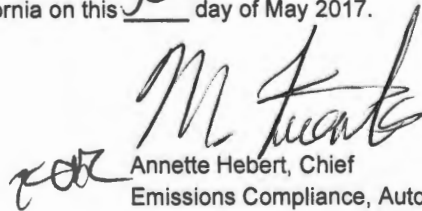 ornia on this day of May 2017.
Annette Hebert, Chief
Emissions Compliance, Auto